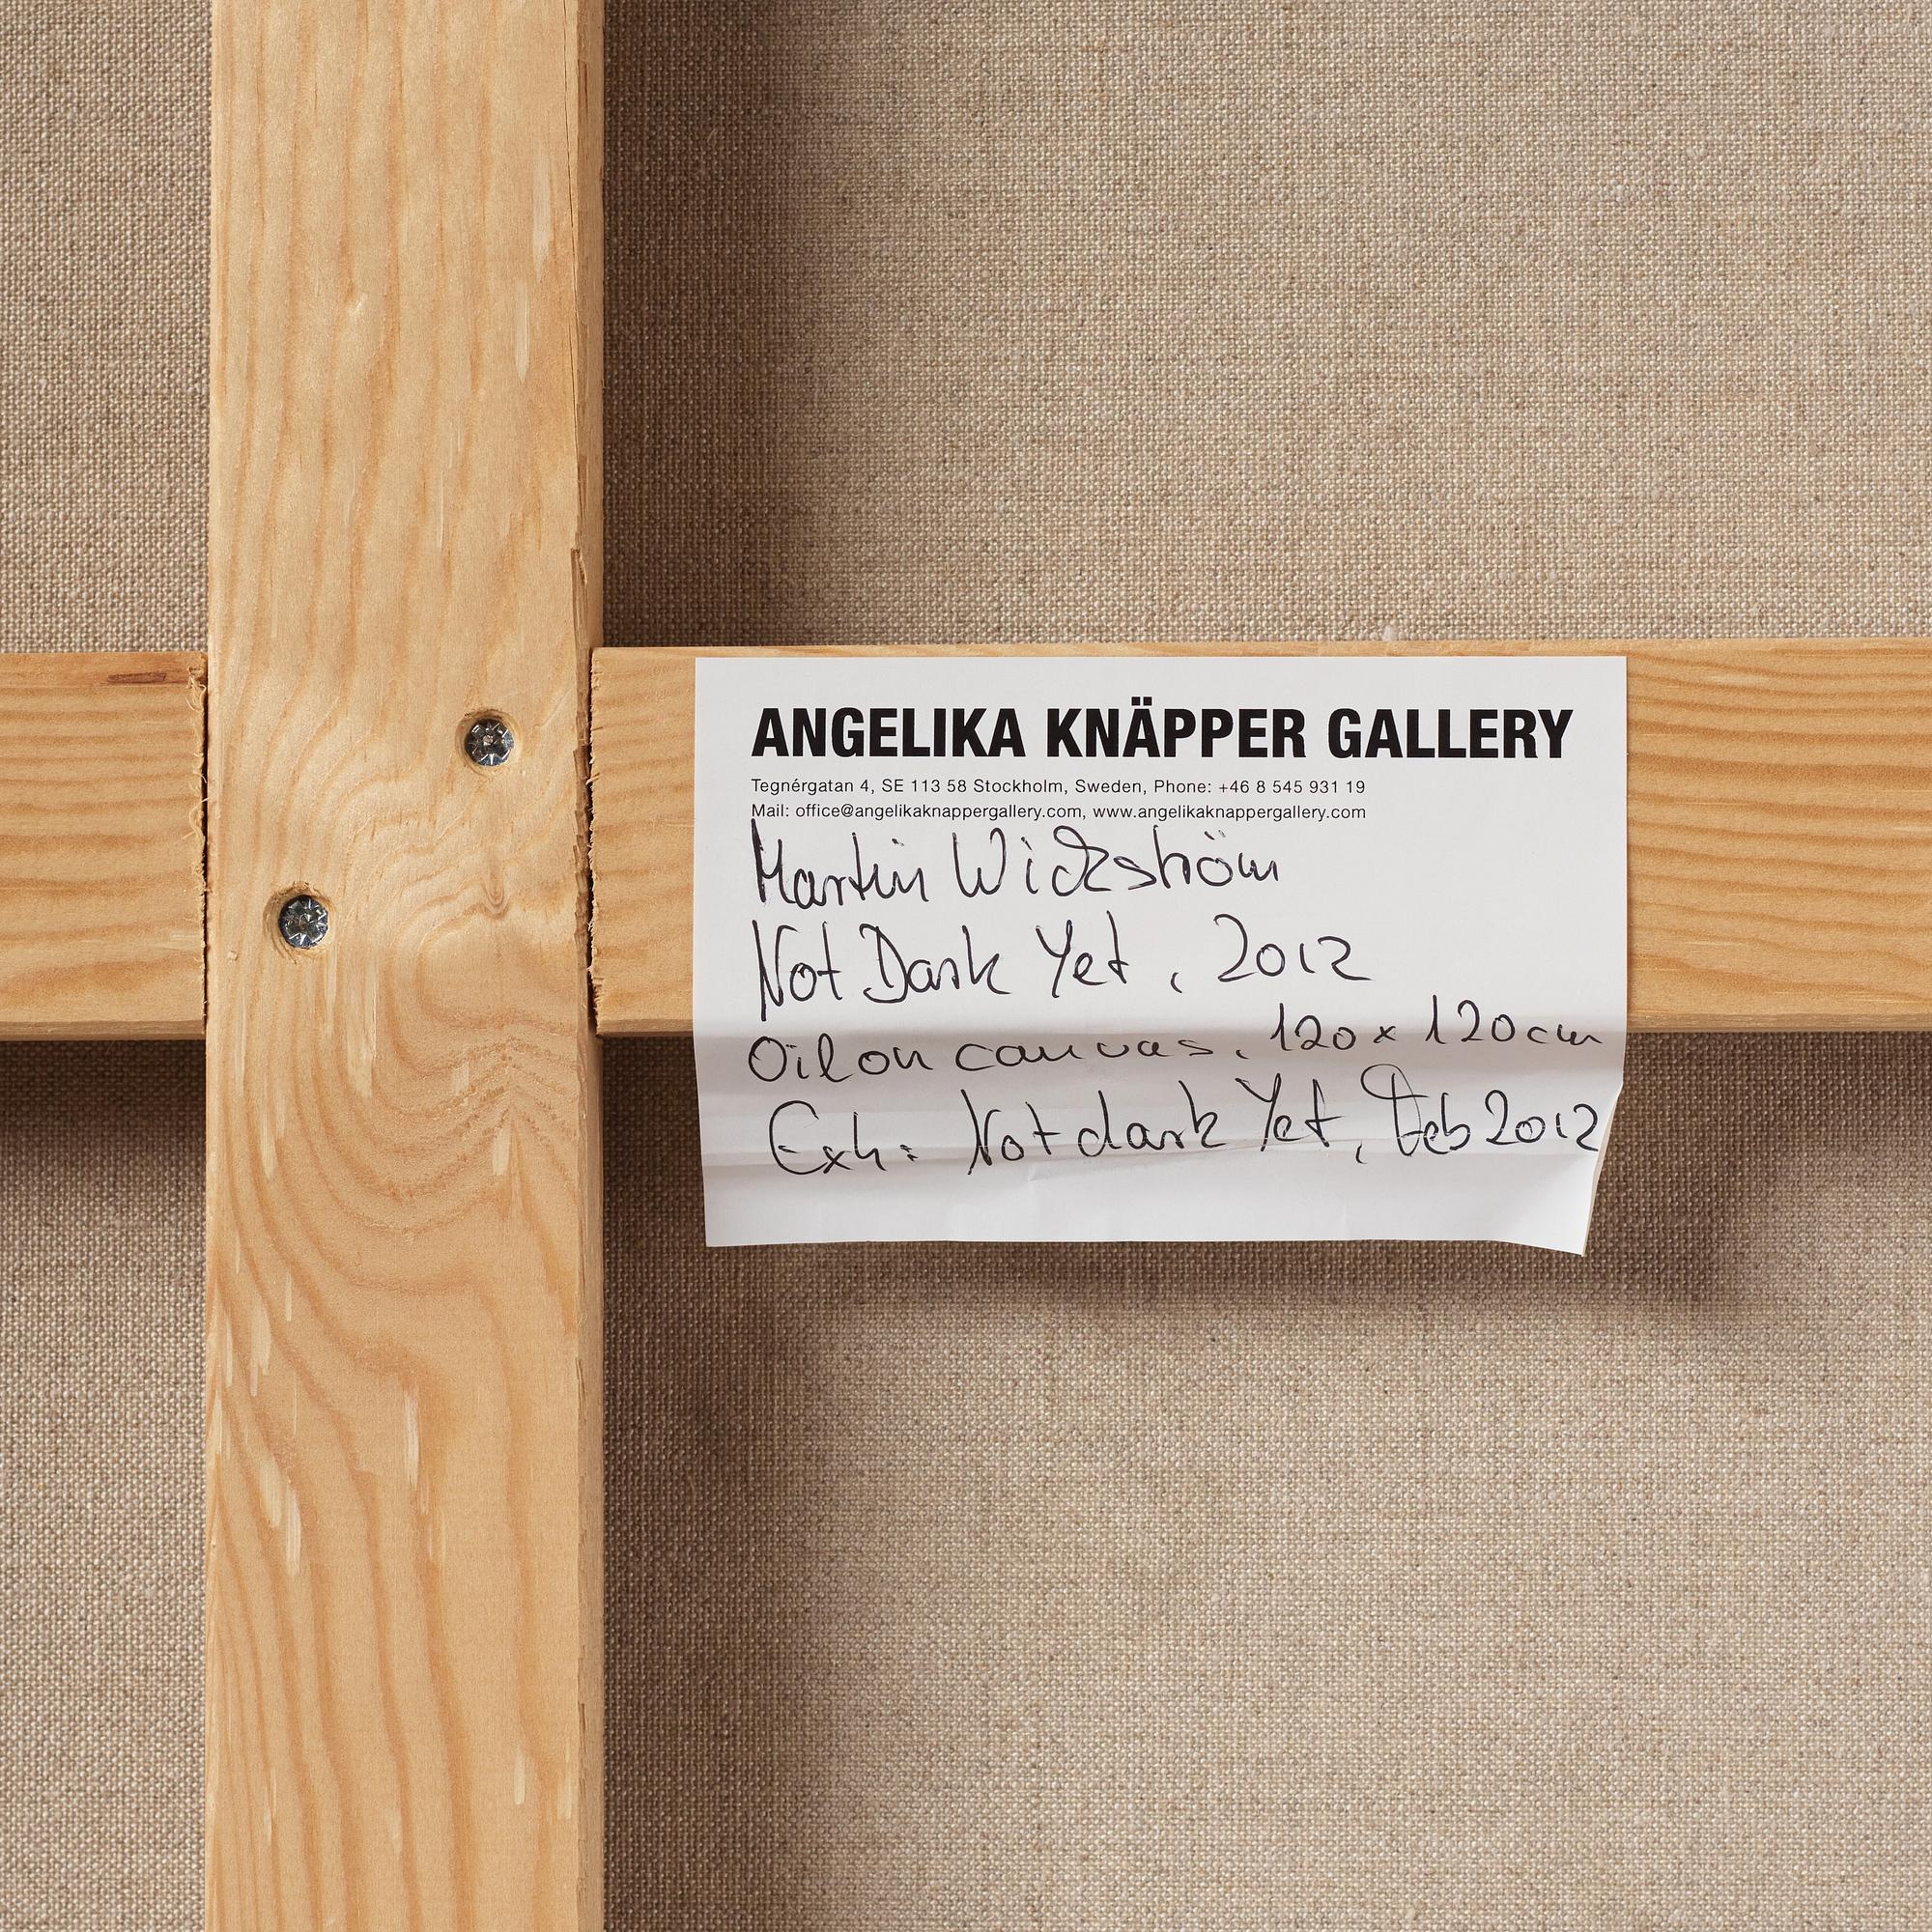 ANGELIKA KNÄPPER GALLERY
Tegnérgatan 4, SE 113 58 Stockholm, Sweden, Phone: +46 8 545 931 19
Mail: office@angelikaknappergallery.com, www.angelikaknappergallery.com
Martin Wickström
Not Dark Yet, 2012
Oil on canvas, 120 x 120 cm
Exh: Not dark Yet, Feb 2012